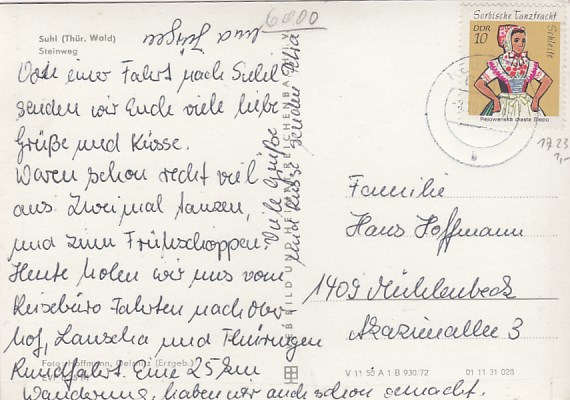 Suhl (Thür. Wald)
Steinweg
6000
Von einer Fahrt nach Suhl
senden wir Euch viele liebe
Grüße und Küsse.
Waren schon recht viel
aus. Zweimal tanzen,
und zum Frühschoppen.
Heute holen wir uns vom
Reisebüro Fahrten nach Ober-
hof, Lauscha und Thüringen
Rundfahrt. Eine 25 km
Wanderung, haben wir auch schon gemacht.
Viele Grüße
und Küsse senden Petra
und Jürgen
Sorbische Tanztracht
Schleife
DDR
10
1723
1,-
Familie
Hans Hoffmann
1409 Mühlenbeck
Akazienallee 3
BILD UND HEIMAT REICHENBACH
Foto: Hoffmann, Oelsnitz (Erzgeb.)
V 11 50 A 1 B 930/72
01 11 31 028